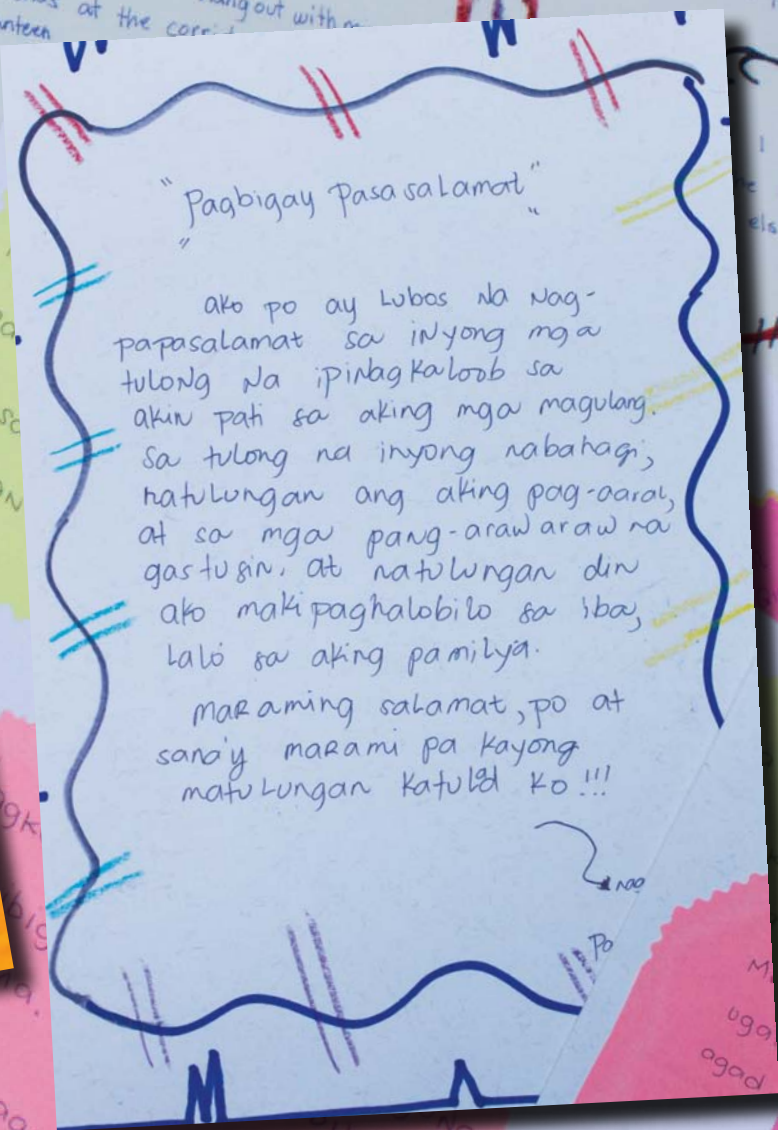 at the corri
ang out with m
anteen
"Pagbigay Pasasalamat"
ako po ay Lubos Na Nag-
papasalamat sa iNyong mga
tuloNg Na ipiNagkaloob sa
akin pati sa aking mga magulang.
sa tulong na inyong nabahagi,
natulungan ang aking pag-aaral,
at sa mga pang-araw araw na
gastusin. at natulungan din
ako makipaghalobilo sa iba,
Lalo sa aking pamilya.
maRaming saLamat, po at
sana'y maRami pa kayong
matuLungan katulad ko!!!
Po
uga
agad